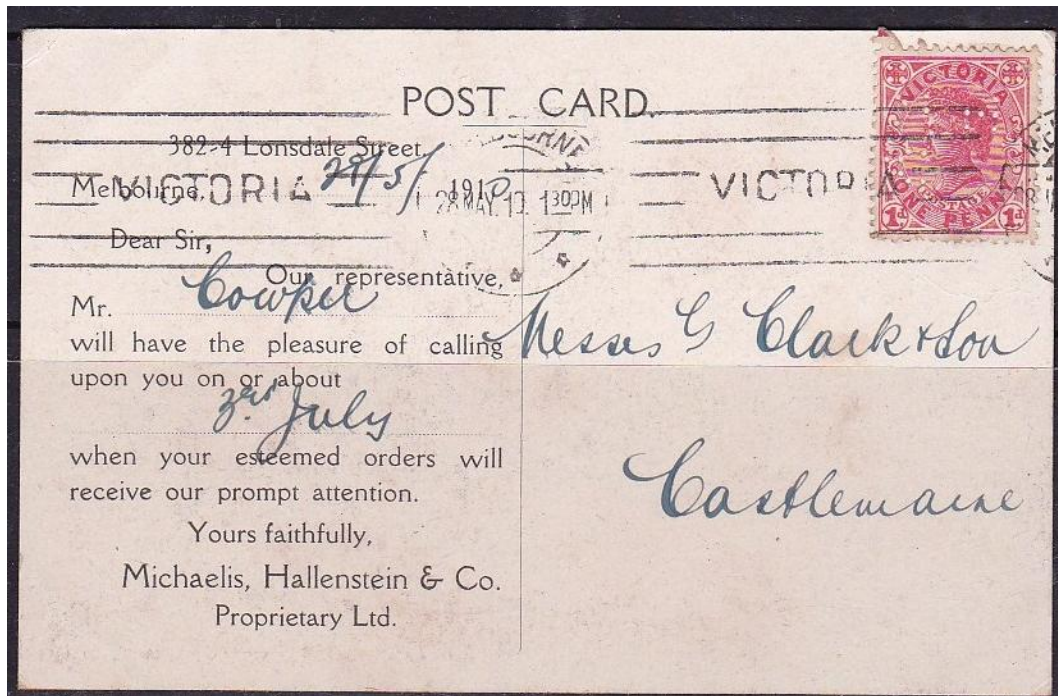 POST CARD
382-4 Lonsdale Street,
Melbourne, 28/5/ 1910
MELBOURNE
28 MAY. 10 1 30PM
VICTORIA
VICTORIA
VICTORIA
POSTAGE
ONE PENNY
1d 1d
Dear Sir,
Our representative,
Mr. Cowper
will have the pleasure of calling
upon you on or about
July
when your esteemed orders will
receive our prompt attention.
Yours faithfully,
Michaelis, Hallenstein & Co.
Proprietary Ltd.
Messrs G Clark & Son
Castlemaine